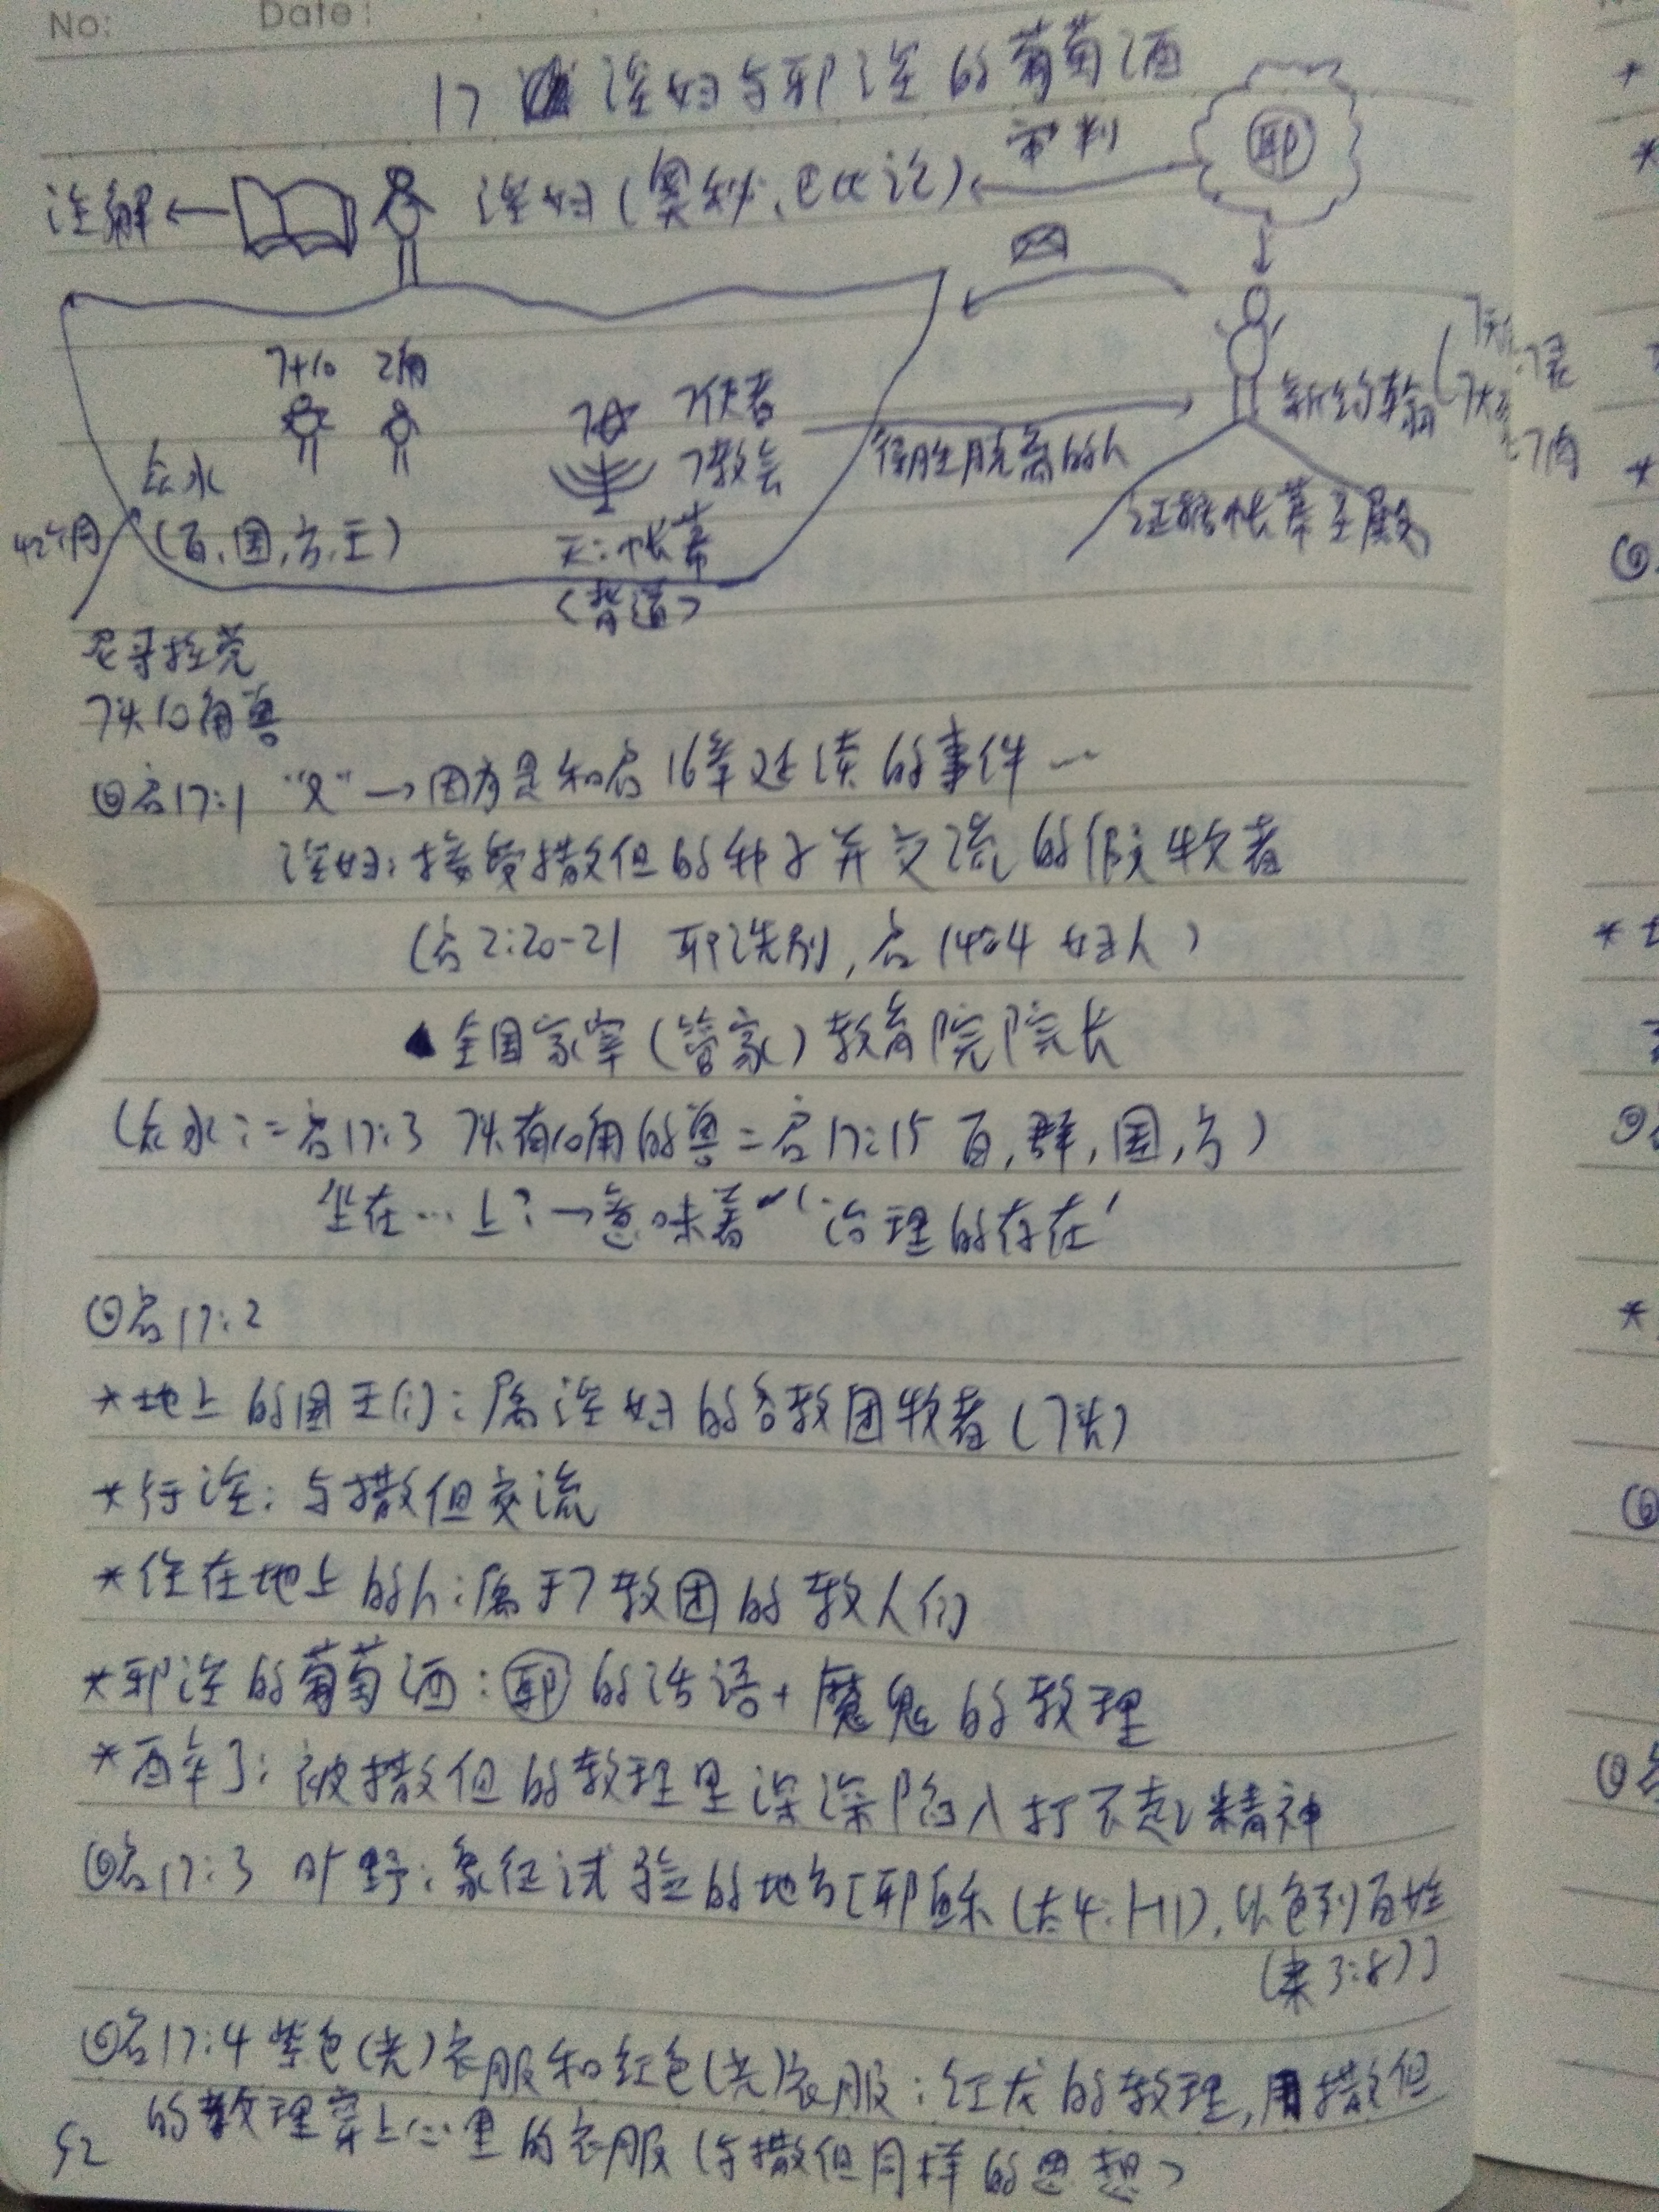 No: Date:
17 淫妇与邪淫的葡萄酒
审判
耶
注解← 淫妇(奥秘、巴比论)
7+10 2角
7使者
7教会
众水
(百,国,方,王)
42个月
天:帐幕
(背道)
得胜脱离的人
新约翰
证据帐幕圣殿
尼哥拉党
7头10角兽
◎启17:1 “又”→因为是和启16章延续的事件…
淫妇:接受撒但的种子并交流的假牧者
(启2:20-21 耶洗别,启14:4 妇人)
▲全国家宰(管家)教育院院长
(众水:=启17:3 7头有10角的兽=启17:15 百,群,国,方)
坐在…上:→意味着“‘治理的存在’
◎启17:2
*地上的国王们:属淫妇的各教团牧者(7头)
*行淫:与撒但交流
*住在地上的人:属于7教团的教人们
*邪淫的葡萄酒:耶的话语+魔鬼的教理
*酒牵了:被撒但的教理里深深陷入打不起精神
◎启17:3 旷野:象征试验的地方[耶稣(太4:1-11),以色列百姓
(来3:8)]
◎启17:4 紫色(光)衣服和红色(光)衣服:红龙的教理,用撒但
的教理穿上心里的衣服(与撒但同样的思想)
52